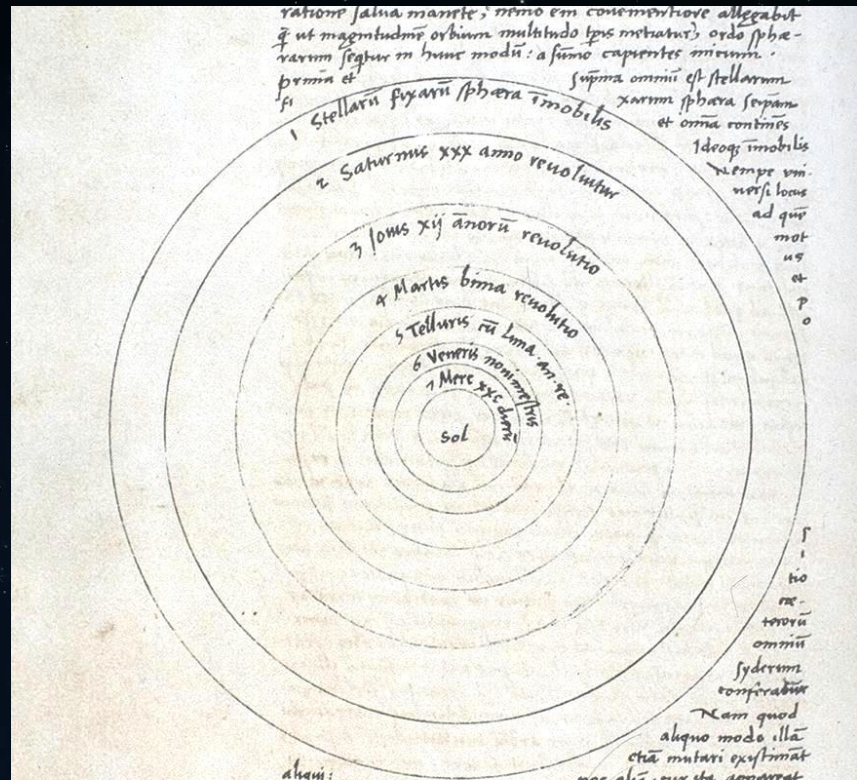 ratione salua manete, nemo em conuenientiore allegabit
q̄ ut magnitudinē orbium multitudo tp̄is metiatur, ordo sphæ-
rarum seq̄tur in hunc modū: a sum̄o capientes initium.
prima et sup̄ma omniū est stellarum
fi xarum sphæra seip̄am
et om̄ia continēs
Ideoq̢ īmobilis
Nempe vni-
uersi locus
ad quē
mot
us
et
p
o
1 Stellarū fixarū sphæra īmobilis
2 Saturnus xxx anno reuoluitur
3 Iouis xij ānorū reuolutio
4 Martis bima reuolutio
5 Telluris cū Luna an. re.
6 Veneris nonimestris
7 Merc xxc dierū
Sol
s
i
tio
cæ-
terorū
omniū
syderum
conferatur
Nam quod
aliquo modo illā
etiā mutari existimāt
aliqui: